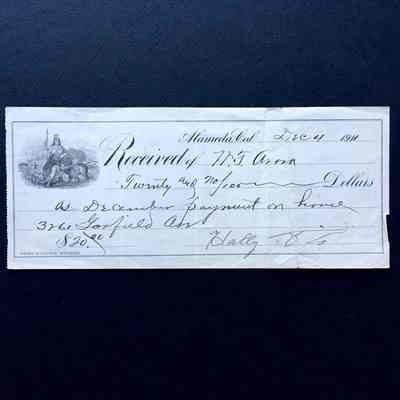 Alameda, Cal. Dec 4 1911
Received of W.T.
Twenty and no/100 Dollars
As December payment on home
Garfield Av
$20.00